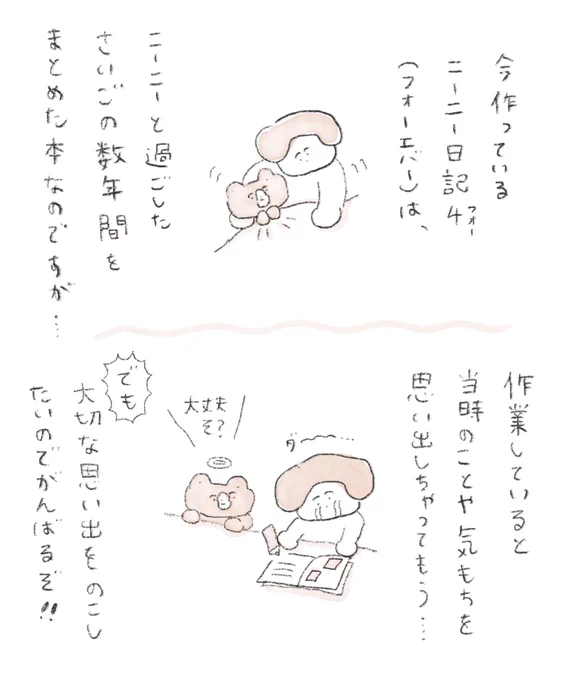 今作っている
ニーニー日記4
フォー
(フォーエバー)は、
ニーニーと過ごした
さいごの数年間を
まとめた本なのですが…
作業していると
当時のことや気もちを
思い出しちゃってもう…
ダー〜〜…
大丈夫
ぞ?
でも
大切な思い出をのこし
たいのでがんばるぞ!!